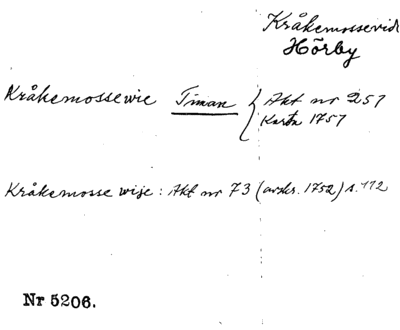 Kråkemossevid
Hörby
Kråkemossewie Timan { Akt nr 257
Karta 1757
Kråkemosse wije: Akt nr 73 (avskr. 1752) s. 112
Nr 5206.